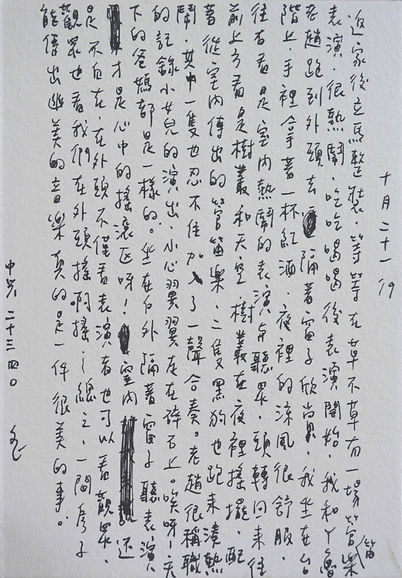 十月二十一
返家後立馬整裝等等在草不草有一場管笛樂
表演,很熱鬧。吃吃喝喝後表演開始,我和丫魯
老趙跑到外頭去,隔著窗子欣賞,我坐在台
階上,手裡拿著一杯紅酒,夜裡的涼風很舒服。
往右看是室內熱鬧的表演與聽眾,頭轉回來往
前上方看是樹叢和天空,樹叢在夜裡搖擺,配
著從室內傳出的管笛樂。二隻黑狗也跑來湊熱
鬧,其中一隻也忍不住加入了一聲合奏。老趙很稱職
的記錄小女兒的演出,小心翼翼走在碎石上。唉呀!天
下的爸媽都是一樣的。坐在戶外隔著窗子聽表演
才是心中的搖滾區呀!室內還
是不自在,在外頭不僅看表演者也可以看觀眾,
觀眾也看我們在外頭搖啊搖!總之,一間房子
能傳出幽美的音樂真的是一件很美的事。
二十三 40